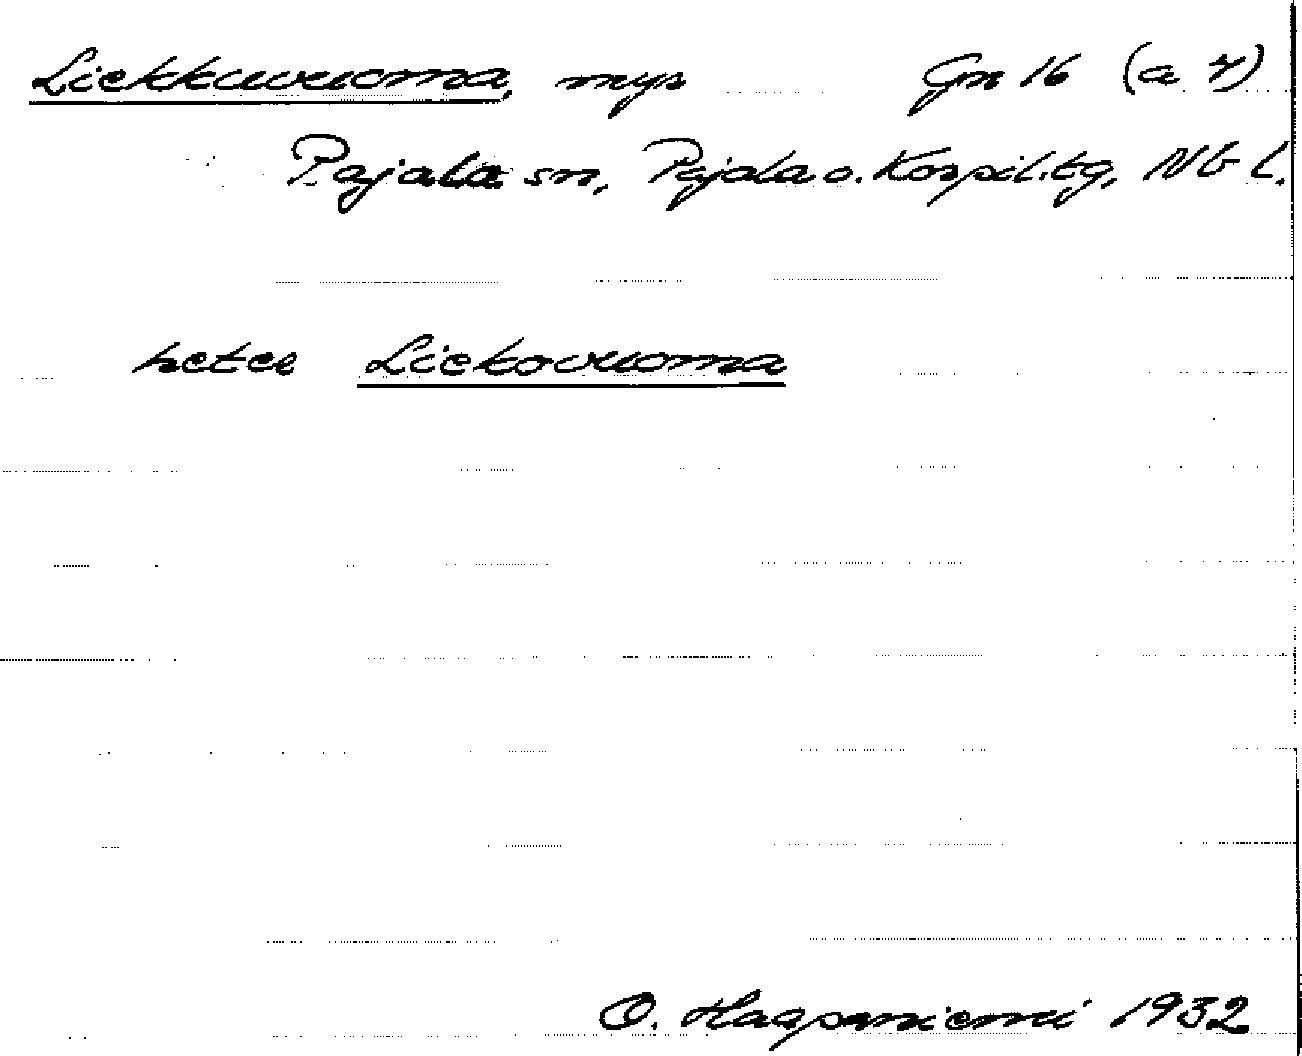 Liekkuvuoma, myr Gn 16 (a 4)
Pajala sn, Pajala o. Korpil. tg, Nb l.
heter Liekovuoma
O. Haapaniemi 1932